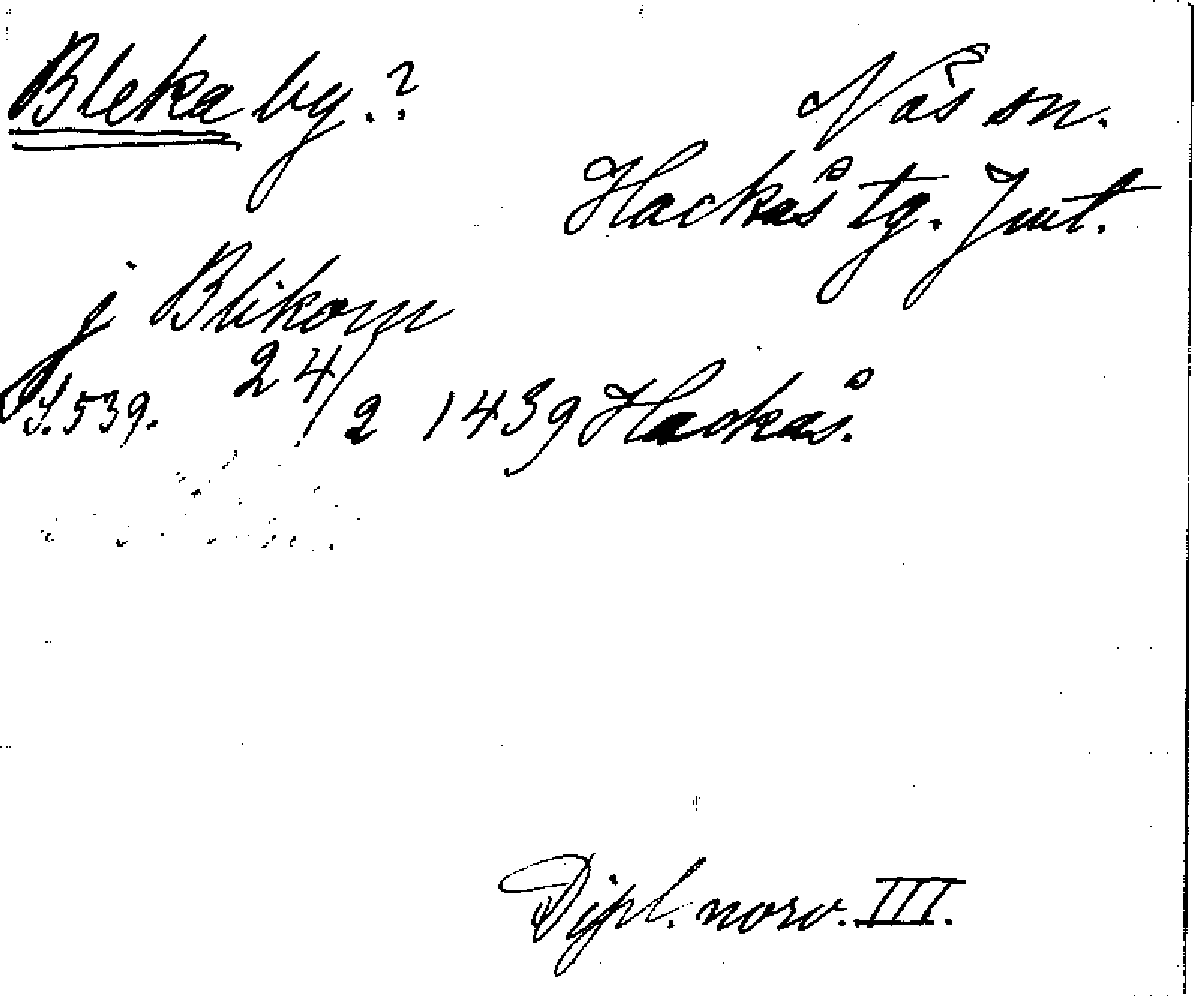 Bleka by.?
Näs sn.
Hackås tg. Jmt.
j Blikom
S. 539. 24/2 1439 Hackås.
Dipl. norv. III.